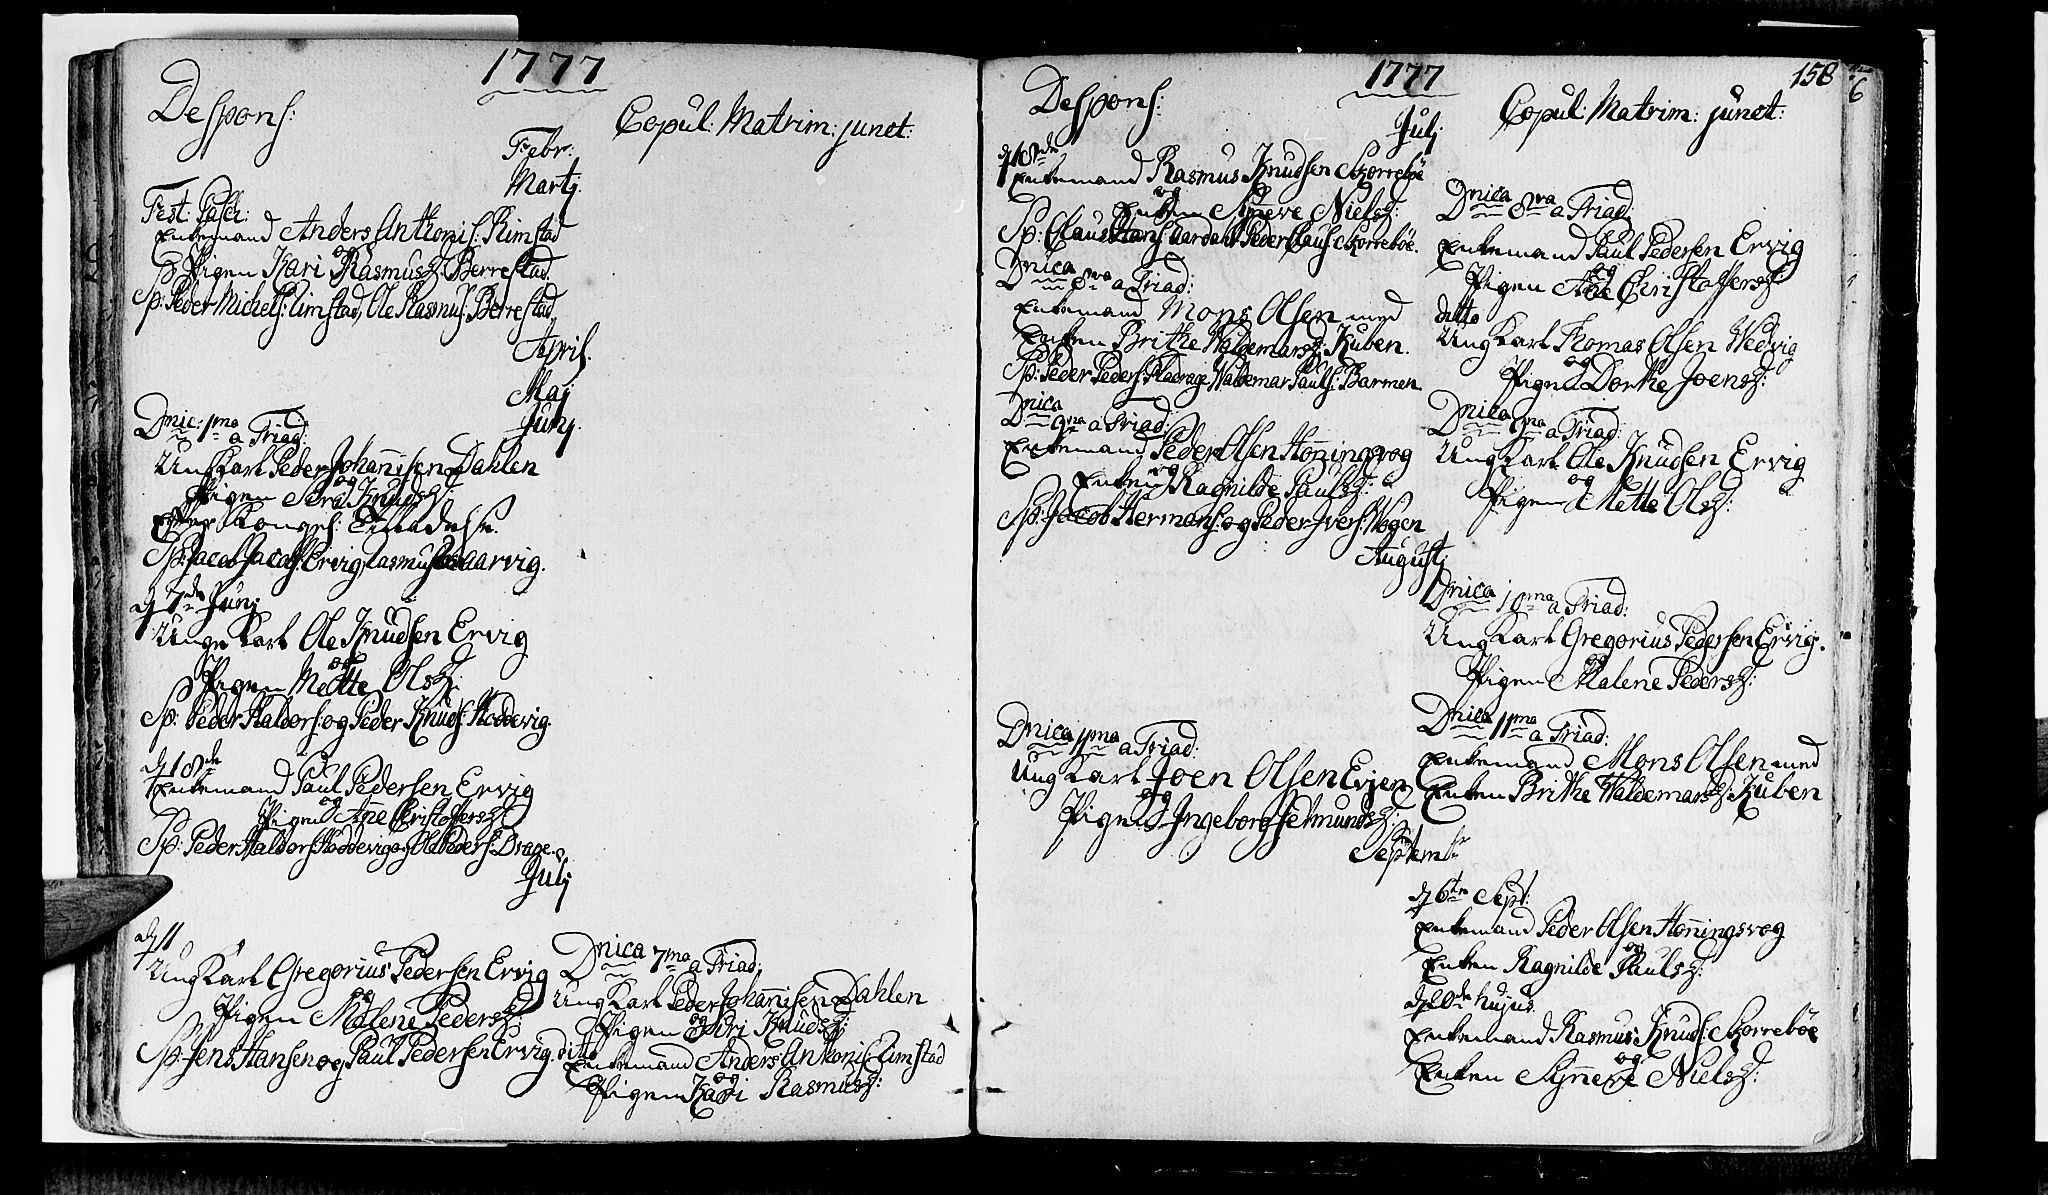 1777
Despons:
Copul: Matrim: junct:
Febr:
Martj.
Fest: Pasch:
Enkemand Anders Anthonis: Rimstad
og
Pigen Kari Rasmusd: Berrestad.
Sp: Peder Michels: Rimstad, Ole Rasmus: Berrestad.
April.
Maj
Junj.
Dnic: 1ma a Triad:
Ung Karl Peder Johannisen Dahlen
og
Pigen Siri Knudsd:
efter Kongel: Tilladelse.
Sp: Jacob Jacobs: Ervig, Rasmus Aarvig.
d 7de Junj
Unge Karl Ole Knudsen Ervig
og
Pigen Mette Olsd:
Sp: Peder Haldors: og Peder Knuds: Hoddevig.
d 18de
Enkemand Paul Pedersen Ervig
og
Pigen Ane Christoffersd:
Sp: Peder Haldors: Hoddevig og Ole Peders: Drage.
Julj
d 11
Ung Karl Gregorius Pedersen Ervig
og
Pigen Malene Pedersd:
Sp: Jens Hansen og Paul Pedersen Ervig.
Dnica 7ma a Triad:
Ung Karl Peder Johannisen Dahlen
og
Pigen Siri Knudsd:
ditto
Enkemand Anders Anthonis: Rimstad
og
Pigen Kari Rasmusd:
1777
158
6
Despons:
Copul: Matrim: junct:
Julj
d 18de
Enkemand Rasmus Knudsen Skorrebøe
og
Enken Synneve Nielsd:
Sp: Claus Hans: Aardahl, Peder Claus: Skorrebøe.
Dnica 8va a Triad:
Enkemand Mons Olsen med
Enken Brithe Waldemarsd: Kuben.
Sp: Peder Peders: Fladrage, Waldemar Pauls: Barmen
Dnica 9na a Triad:
Enkemand Peder Olsen Honningsvog
og
Enken Ragnilde Paulsd:
Sp: Jacob Hermans: og Peder Ivers: Wogen
Augustj
Dnica 11ma a Triad:
Ung Karl Joen Olsen Erjen
og
Pigen Ingeborg Helmundsd:
Septembr
Dnica 8va a Triad:
Enkemand Paul Pedersen Ervig
og
Pigen Ane Christoffersd:
ditto
Ung Karl Thomas Olsen Wedvig
og
Pigen Dorthe Joensd:
Dnica 9na a Triad:
Ung Karl Ole Knudsen Ervig
og
Pigen Mette Olsd:
Dnica 10ma a Triad:
Ung Karl Gregorius Pedersen Ervig.
og
Pigen Malene Pedersd:
Dnica 11ma a Triad:
Enkemand Mons Olsen med
Enken Brithe Waldemarsd: Kuben
d 6te Sept:
Enkemand Peder Olsen Honningsvog
og
Enken Ragnilde Paulsd:
d 20de hujus
Enkemand Rasmus Knuds: Skorrebøe
og
Enken Synneve Nielsd: